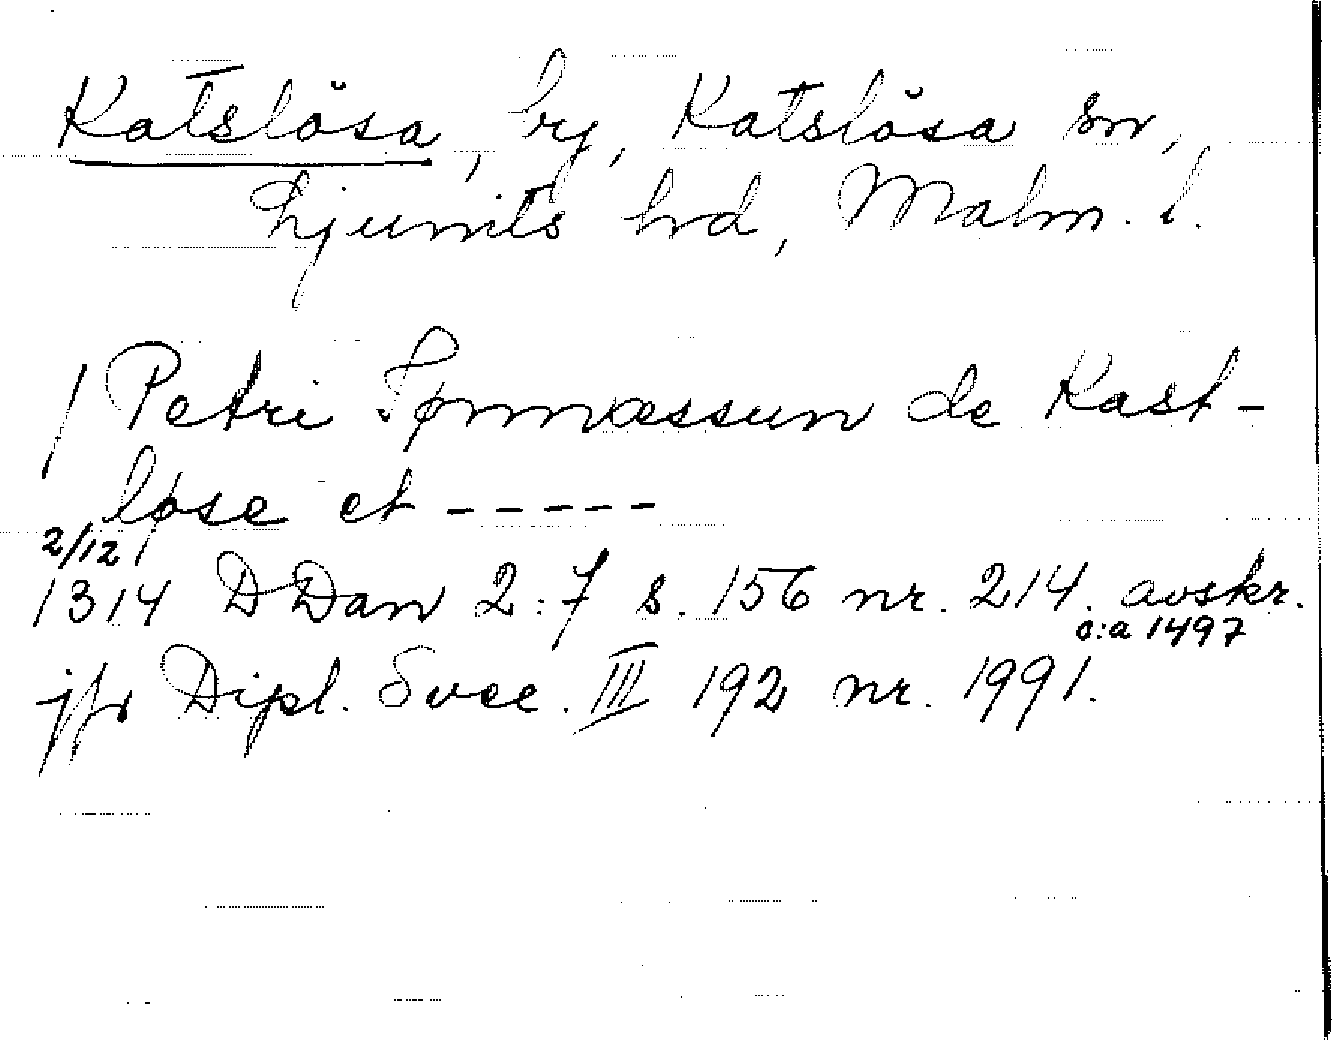 Katslösa, by, Katslösa sn,
Ljunits hd, Malm. l.
/ Petri Tømmæssun de Kast-
løse et -----
2/12
1314 DDan 2:7 s. 156 nr. 214. avskr.
o:a 1497
jfr Dipl. Svec. III 192 nr. 1991.